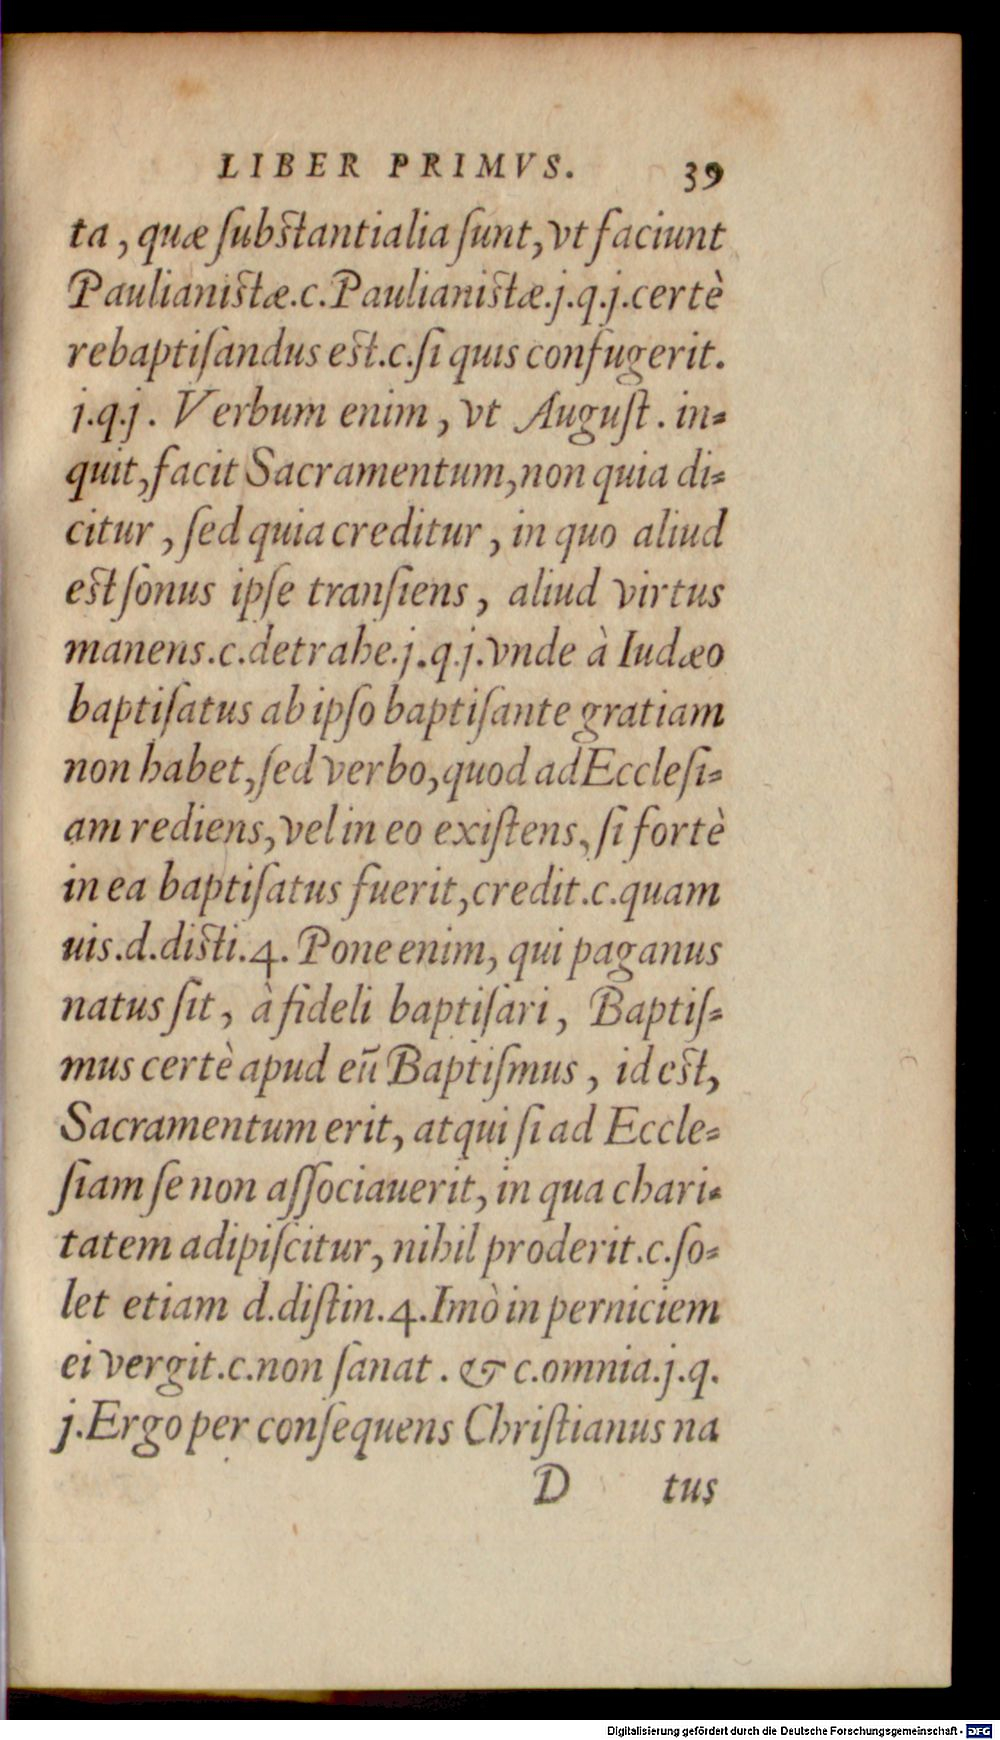 LIBER PRIMVS. 39
ta, quæ ſubstantialia ſunt, vt faciunt
Paulianistæ.c.Paulianistæ.j.q.j.certè
rebaptiſandus est.c.ſi quis confugerit.
j.q.j. Verbum enim, vt Auguſt. in-
quit, facit Sacramentum, non quia di-
citur, ſed quia creditur, in quo aliud
est ſonus ipſe tranſiens, aliud virtus
manens.c.detrahe.j.q.j.vnde à Iudæo
baptiſatus ab ipſo baptiſante gratiam
non habet, ſed verbo, quod ad Eccleſi-
am rediens, vel in eo exiſtens, ſi fortè
in ea baptiſatus fuerit, credit.c.quam
uis.d.disti.4. Pone enim, qui paganus
natus ſit, à fideli baptiſari, Baptiſ-
mus certè apud eū Baptiſmus, id est,
Sacramentum erit, atqui ſi ad Eccle-
ſiam ſe non aſſociauerit, in qua chari-
tatem adipiſcitur, nihil proderit.c.ſo-
let etiam d.diſtin.4.Imò in perniciem
ei vergit.c.non ſanat. & c.omnia.j.q.
j.Ergo per conſequens Chriſtianus na
D tus
Digitalisierung gefördert durch die Deutsche Forschungsgemeinschaft - DFG